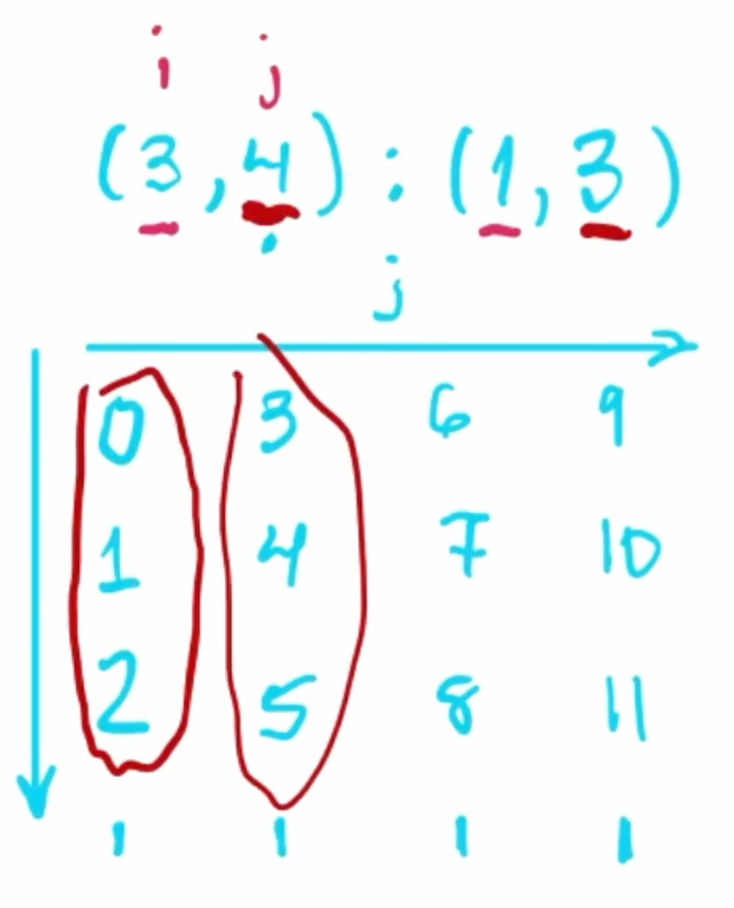 i j
(3,4) : (1,3)
j
0 3 6 9
1 4 7 10
2 5 8 11